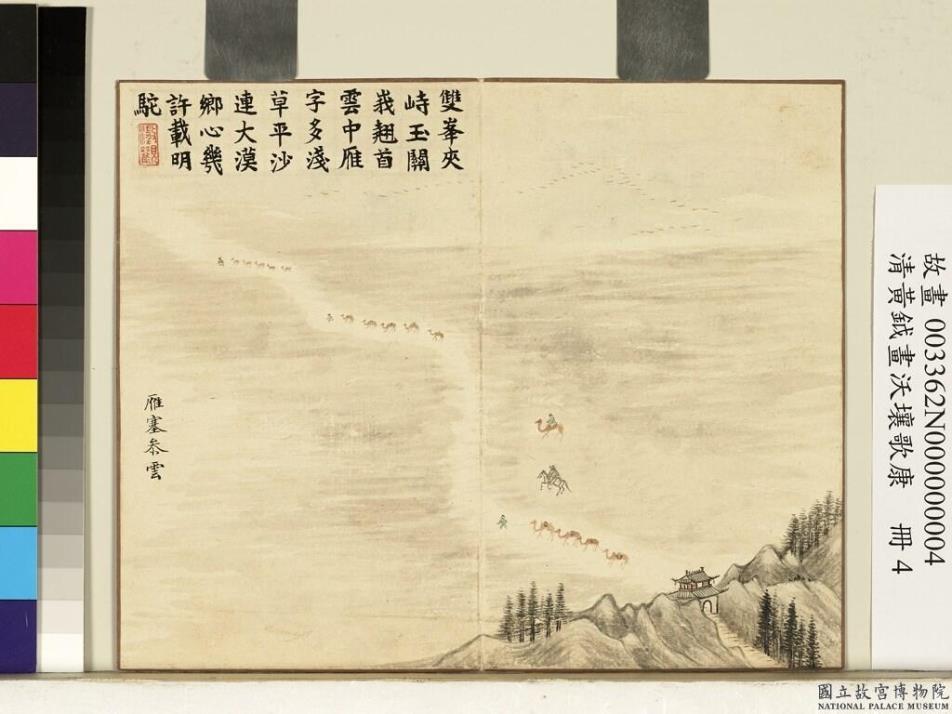 雙峯夾
峙玉關
峩翹首
雲中雁
字多淺
草平沙
連大漠
鄉心幾
許載明
駝
雁塞叅雲
故畫 003362N000000004
清黃鉞畫沃壤歌康 冊 4
國立故宮博物院
NATIONAL PALACE MUSEUM